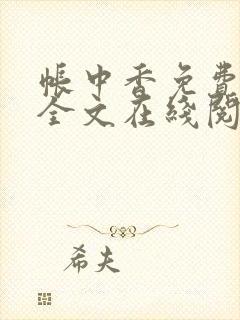 帐中香免费
全文在线阅
希夫